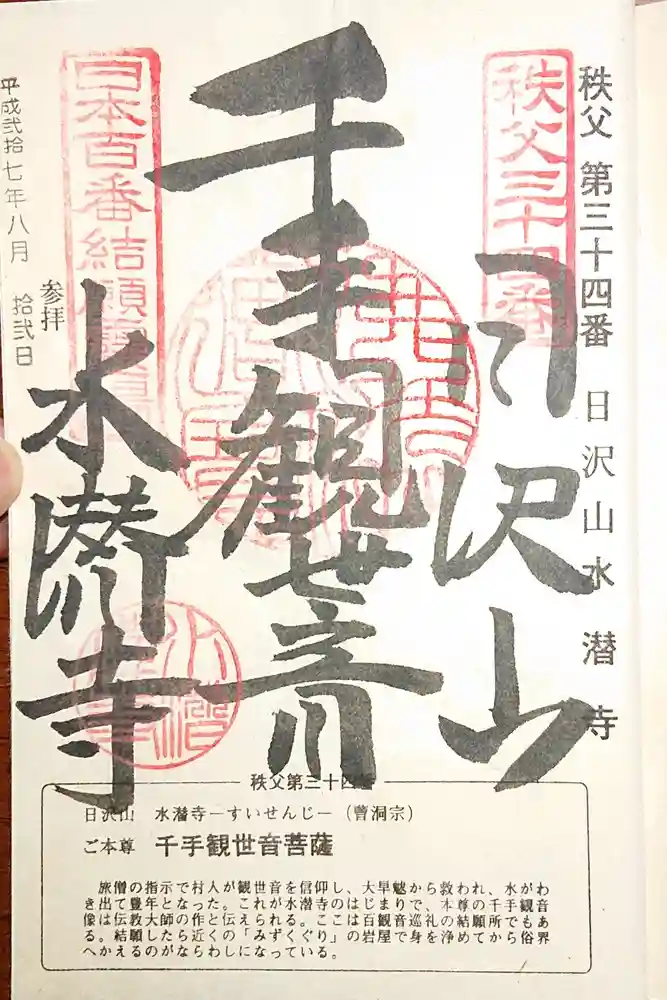 秩父 第三十四番 日沢山水潜寺
秩父三十四番
日沢山
千手観世音
日本百番結願
水潜寺
参拝
平成弐拾七年八月 拾弐日
秩父第三十四番
日沢山 水潜寺―すいせんじ―(曹洞宗)
ご本尊 千手観世音菩薩
旅僧の指示で村人が観世音を信仰し、大旱魃から救われ、水がわ
き出て豊年となった。これが水潜寺のはじまりで、本尊の千手観音
像は伝教大師の作と伝えられる。ここは百観音巡礼の結願所でもあ
る。結願したら近くの「みずくぐり」の岩屋で身を浄めてから俗界
へかえるのがならわしになっている。